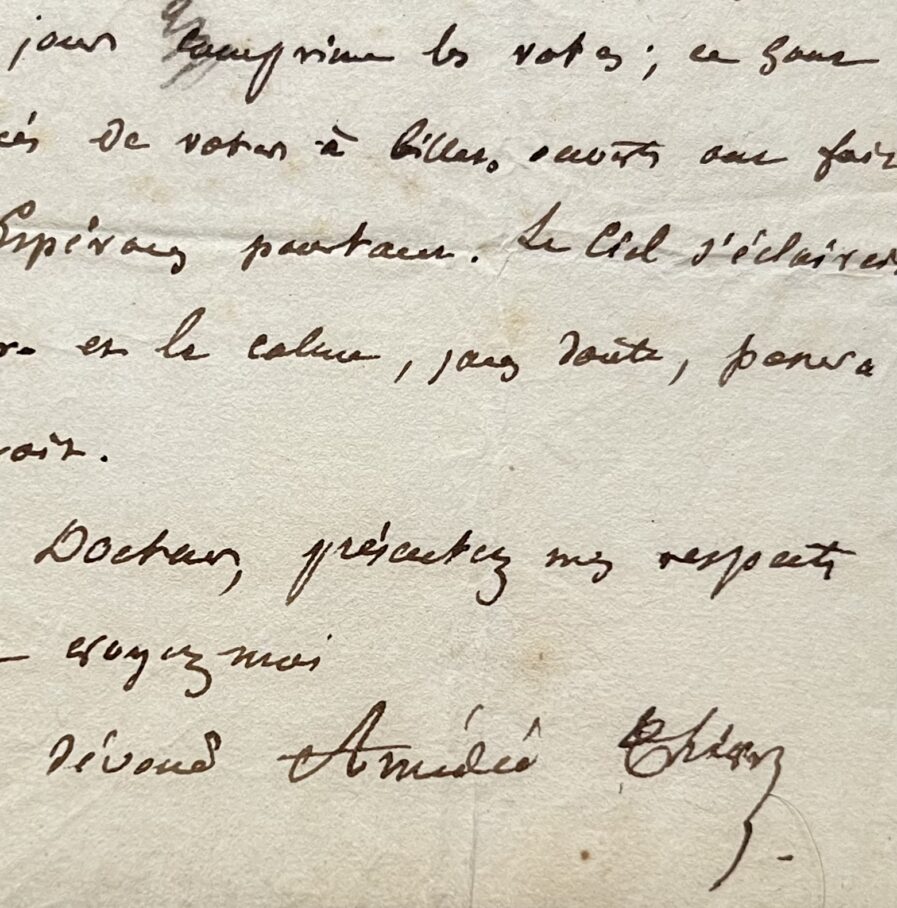 jours comprime les votes; ce sont
de voter à billets ouverts ont fait
Espérons pourtant. Le Ciel s'éclaircit
et le calme, sans doute, pensera
voir.
Docteur, présentez mes respects
croyez moi
dévoué Amédée Thierry